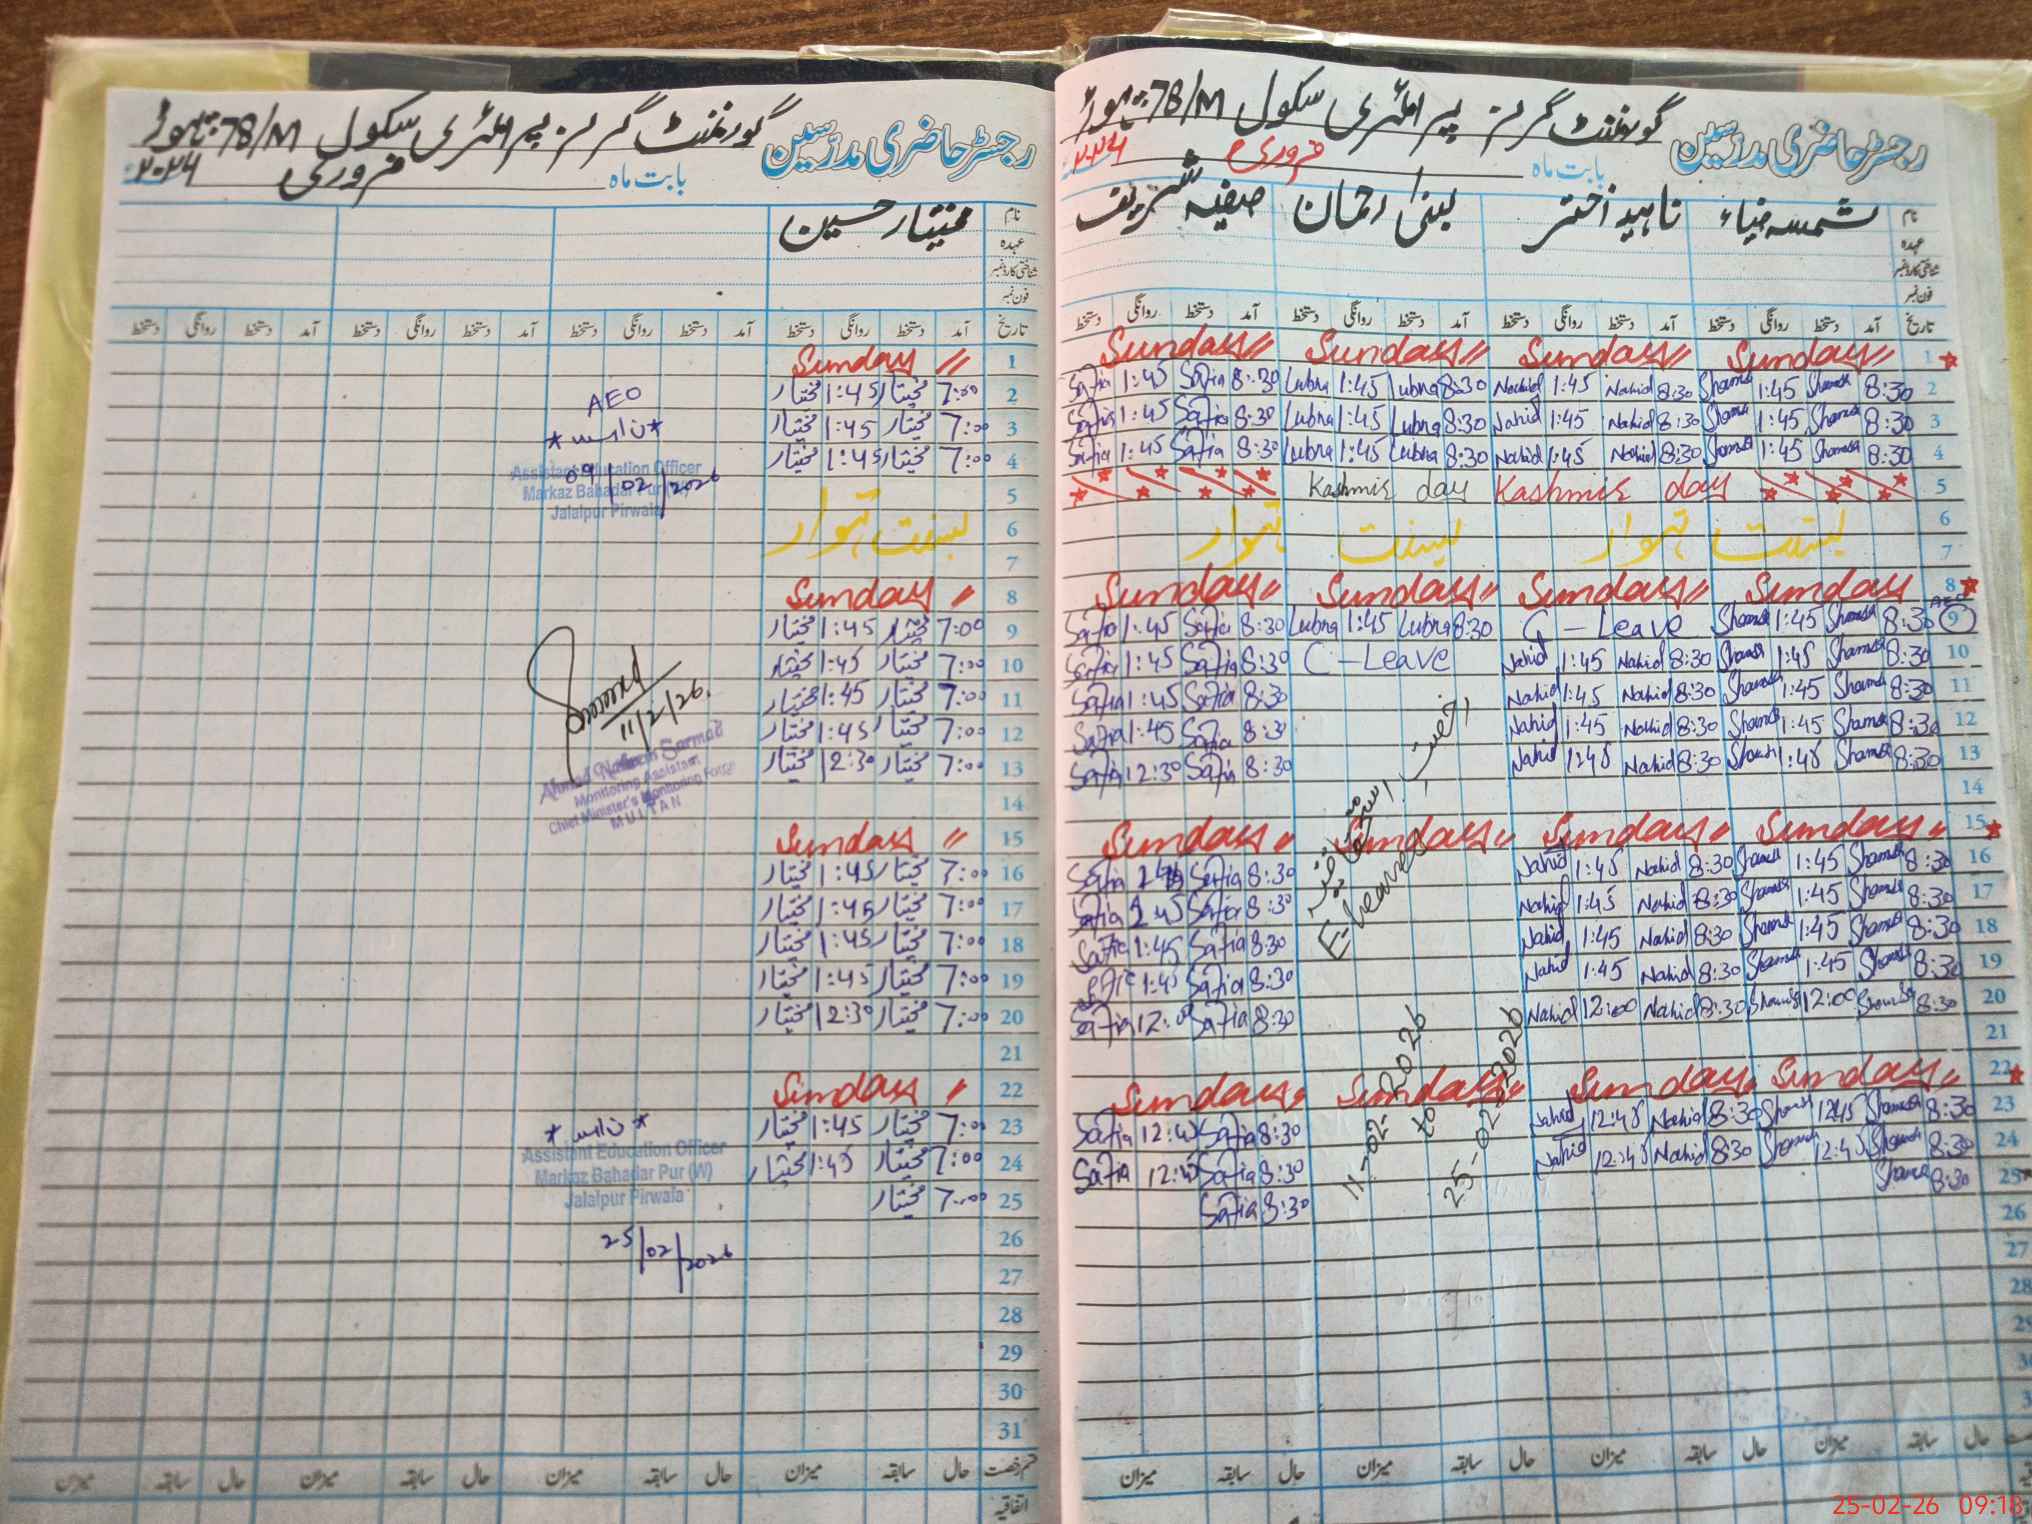 رجسٹر حاضری مدرسین گورنمنٹ گرلز پرائمری سکول 78/M
بابت ماہ فروری ۲۰۲۶
نام مختیار حسین
عہدہ
شناختی کارڈ نمبر
فون نمبر
تاریخ آمد دستخط روانگی دستخط آمد دستخط روانگی دستخط آمد دستخط روانگی دستخط آمد دستخط روانگی دستخط
1 Sunday 〃
2 7:00 مختیار 1:45 مختیار
3 7:00 مختیار 1:45 مختیار
4 7:00 مختیار 1:45 مختیار
5
6 بسنت تہوار
7
8 Sunday 〃
9 7:00 مختیار 1:45 مختیار
10 7:00 مختیار 1:45 مختیار
11 7:00 مختیار 1:45 مختیار
12 7:00 مختیار 1:45 مختیار
13 7:00 مختیار 12:30 مختیار
14
15 Sunday 〃
16 7:00 مختیار 1:45 مختیار
17 7:00 مختیار 1:45 مختیار
18 7:00 مختیار 1:45 مختیار
19 7:00 مختیار 1:45 مختیار
20 7:00 مختیار 12:30 مختیار
21
22 Sunday 〃
23 7:00 مختیار 1:45 مختیار
24 7:00 مختیار 1:45 مختیار
25 7:00 مختیار
26
27
28
29
30
31
قسم رخصت حال سابقہ میزان حال سابقہ میزان حال سابقہ میزان حال سابقہ میزان
اتفاقیہ
AEO
Assistant Education Officer
Markaz Bahadar Pur (W)
Jalalpur Pirwala
09/02/2026
11/2/26.
Ahmad Nadeem Sarmad
Monitoring Assistant
Chief Minister's Monitoring Force
MULTAN
Assistant Education Officer
Markaz Bahadar Pur (W)
Jalalpur Pirwala
25/02/2026
رجسٹر حاضری مدرسین گورنمنٹ گرلز پرائمری سکول 78/M
بابت ماہ فروری ۲۰۲۶
نام شمسہ ضیاء ناہید اختر لبنیٰ رحمان صفیہ شریف
عہدہ
شناختی کارڈ نمبر
فون نمبر
تاریخ آمد دستخط روانگی دستخط آمد دستخط روانگی دستخط آمد دستخط روانگی دستخط آمد دستخط روانگی دستخط
Sunday〃 Sunday〃 Sunday〃 Sunday〃 1
Safia 1:45 Safia 8:30 Lubna 1:45 Lubna 8:30 Nahid 1:45 Nahid 8:30 Shamsa 1:45 Shamsa 8:30 2
Safia 1:45 Safia 8:30 Lubna 1:45 Lubna 8:30 Nahid 1:45 Nahid 8:30 Shamsa 1:45 Shamsa 8:30 3
Safia 1:45 Safia 8:30 Lubna 1:45 Lubna 8:30 Nahid 1:45 Nahid 8:30 Shamsa 1:45 Shamsa 8:30 4
Kashmir day Kashmir day 5
6
بسنت تہوار بسنت تہوار
7
Sunday〃 Sunday〃 Sunday〃 Sunday 8
AEO
Safia 1:45 Safia 8:30 Lubna 1:45 Lubna 8:30 C-Leave Shamsa 1:45 Shamsa 8:30 9
Safia 1:45 Safia 8:30 C-Leave Nahid 1:45 Nahid 8:30 Shamsa 1:45 Shamsa 8:30 10
Safia 1:45 Safia 8:30 Nahid 1:45 Nahid 8:30 Shamsa 1:45 Shamsa 8:30 11
Safia 1:45 Safia 8:30 Nahid 1:45 Nahid 8:30 Shamsa 1:45 Shamsa 8:30 12
Safia 12:30 Safia 8:30 Nahid 1:45 Nahid 8:30 Shamsa 1:45 Shamsa 8:30 13
14
Sunday〃 Sunday〃 Sunday〃 Sunday〃 15
Safia Safia 8:30 Nahid 1:45 Nahid 8:30 Shamsa 1:45 Shamsa 8:30 16
Safia Safia 8:30 Nahid 1:45 Nahid 8:30 Shamsa 1:45 Shamsa 8:30 17
Safia 1:45 Safia 8:30 Nahid 1:45 Nahid 8:30 Shamsa 1:45 Shamsa 8:30 18
Safia 1:45 Safia 8:30 Nahid 1:45 Nahid 8:30 Shamsa 1:45 Shamsa 8:30 19
Safia 12:00 Safia 8:30 Nahid 12:00 Nahid 8:30 Shamsa 12:00 Shamsa 8:30 20
21
Sunday〃 Sunday〃 Sunday〃 Sunday〃 22
Safia 12:45 Safia 8:30 Nahid 12:45 Nahid 8:30 Shamsa 12:45 Shamsa 8:30 23
Safia 12:45 Safia 8:30 Nahid 12:45 Nahid 8:30 Shamsa 12:45 Shamsa 8:30 24
Safia 8:30 Shamsa 8:30 25
26
27
28
رخصت استحقاقیہ
E-Leave
11-02-2026
to
25-02-2026
حال سابقہ میزان حال سابقہ میزان حال سابقہ میزان
25-02-26 09:18